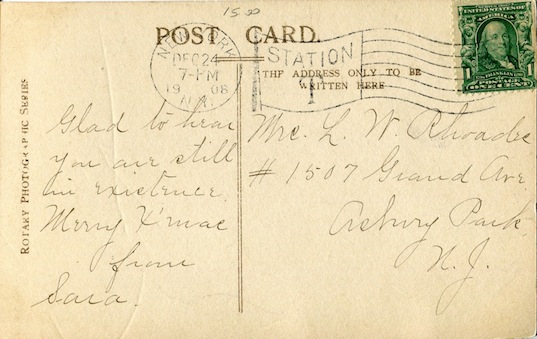 15.00
POST CARD.
NEW YORK
DEC 24
7-PM
1908
N.Y.
STATION
1
THE ADDRESS ONLY TO BE
WRITTEN HERE
UNITED STATES OF
AMERICA
1
POSTAGE
ONE CENT
ROTARY PHOTOGRAPHIC SERIES
Glad to hear
you are still
in existence.
Merry X'mas
from
Sara.
Mrs. L. W. Rhoades
# 1507 Grand Ave.
Asbury Park,
N. J.